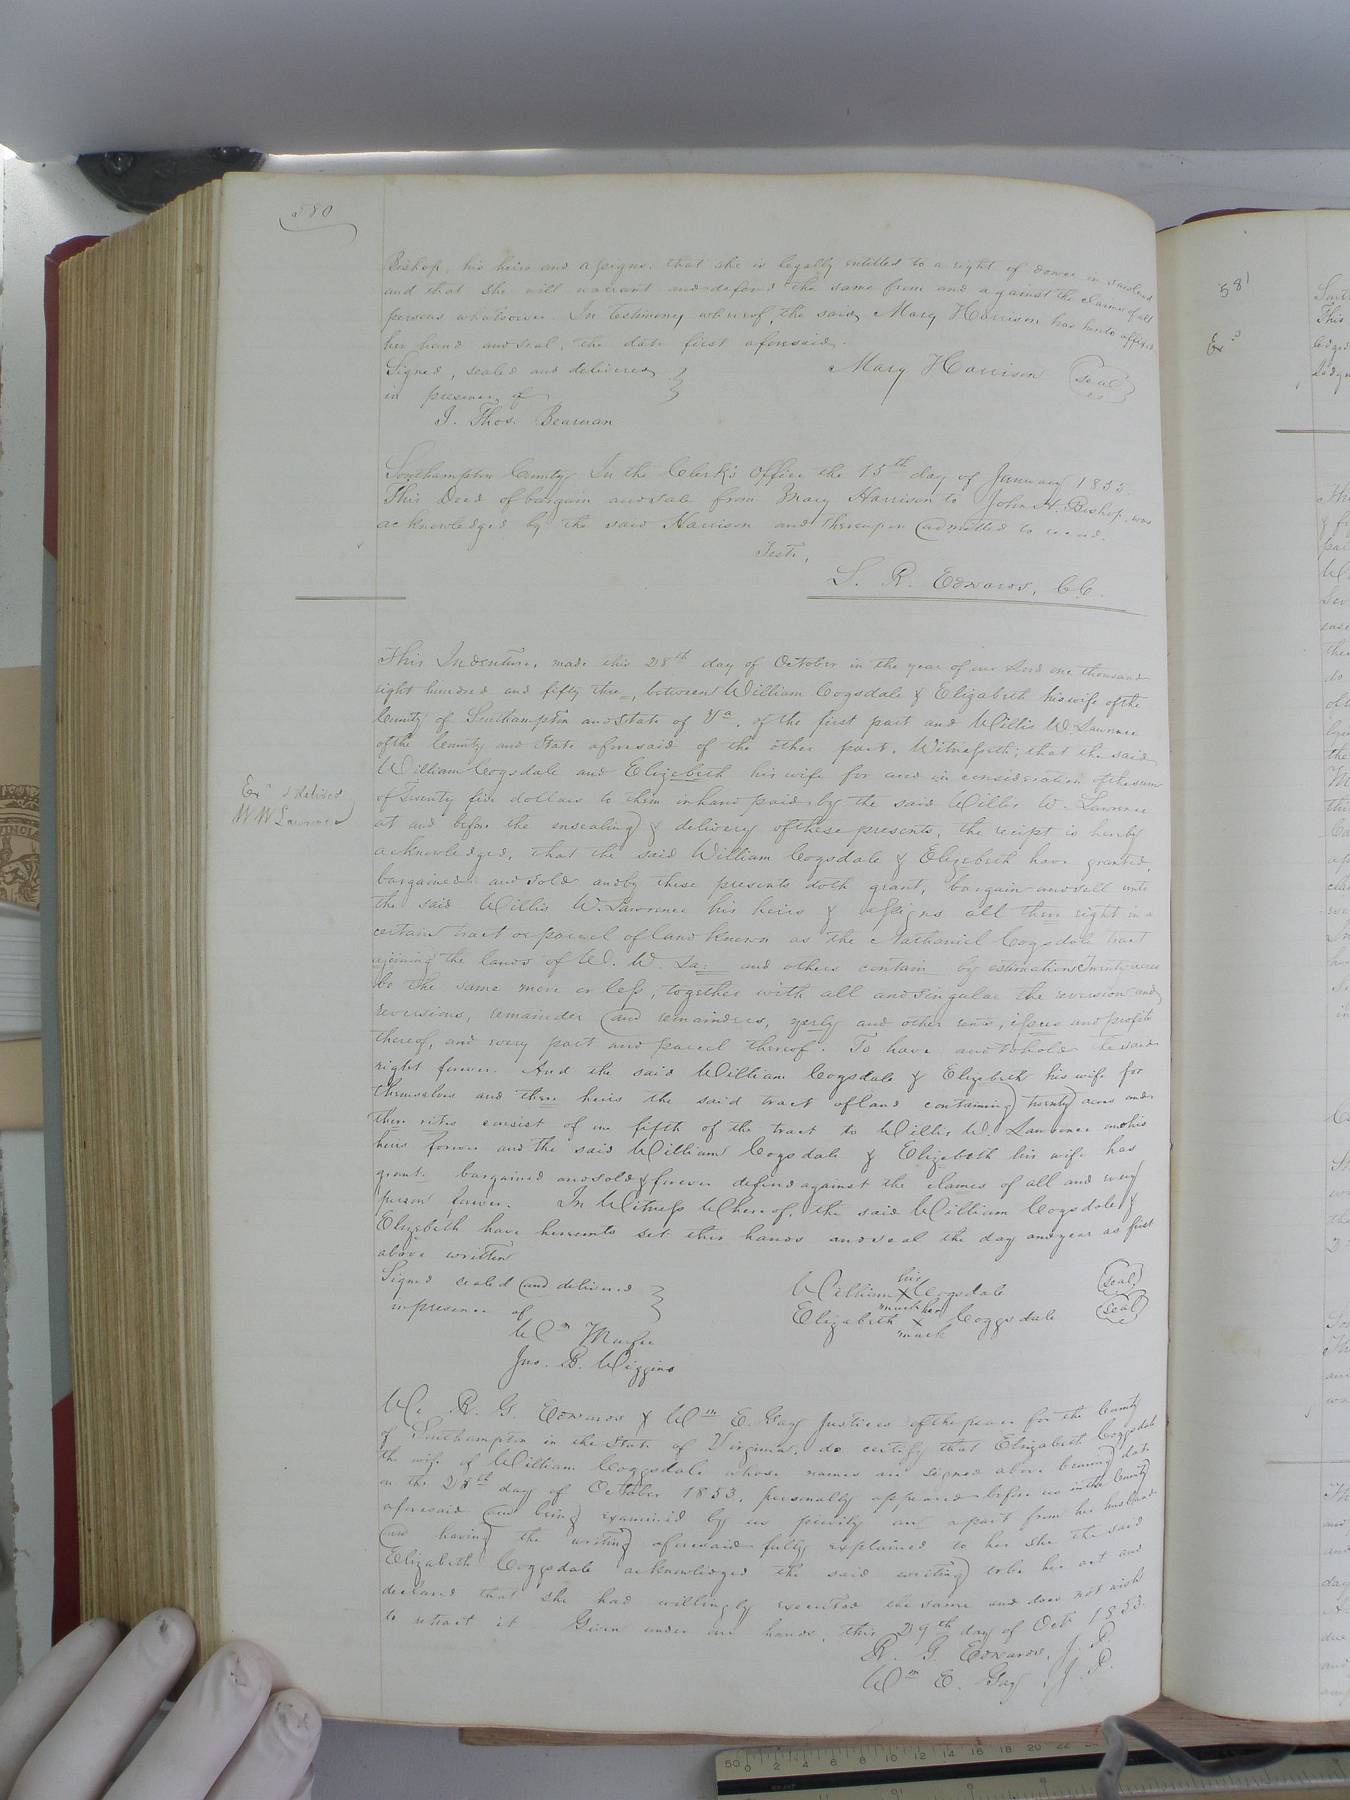 580
Bishop, his heirs and assigns. that she is legally entitled to a right of dower in said land
and that she will warrant and defend the same from and against the claims of all
persons whatsoever. In testimony whereof, the said Mary Harrison has hereto affixed
her hand and seal, the date first aforesaid.
Signed, sealed and delivered Mary Harrison seal
in presence of
J. Thos. Bearman
Southampton County In the Clerk's Office the 15th day of January 1855
This Deed of bargain and sale from Mary Harrison to John H. Bishop, was
acknowledged by the said Harrison and thereupon admitted to record.
Teste,
L. R. Edwards, C.C.
This Indenture, made this 28th day of October in the year of our Lord one thousand
eight hundred and fifty three, between William Cogsdale & Elizabeth his wife of the
County of Southampton and State of Va. of the first part and Willis W Lawrence
of the County and State aforesaid of the other part, Witnesseth; that the said
William Cogsdale and Elizebeth his wife for and in consideration of the sum
Exd & delived
of Twenty five dollars to them in hand paid by the said Willis W. Lawrence
W W Lawrence
at and before the ensealing & delivery of these presents, the recipt is hereby
acknowledged, that the said William Cogsdale & Elizebeth have granted,
bargained and sold and by these presents doth grant, bargain and sell unto
the said Willis W. Lawrence his heirs & assigns all there right in a
certain tract or parcel of land known as the Nathaniel Cogsdale tract
ajoining the lands of W. W. La: and others contain by estimation Twenty acres
be the same more or less, together with all and singular the reversion and
reversions, remainder and remainders, yerly and other rents, issues and profits
thereof, and every part and parcel thereof. To have and to hold
right forever. And the said William Cogsdale & Elizebeth his wife for
themselves and there heirs the said tract of land containing twenty acres and
there rites consist of one fifth of the tract to Willis W. Lawrence and his
heirs forever and the said William Cogsdale & Elizabeth his wife has
grant. bargained and sold & forever defend against the clames of all and every
person forever. In Witness Whereof, the said William Cogsdale &
Elizebeth have hereunto set their hands and seal the day and year as first
above written
Signed sealed and delivered William his X mark Cogsdale seal
in presence of Elizabeth her X mark Coggsdale seal
Wm
Jno. B. Wiggins
We R. G. Edwards & Wm E. Gay Justices of the peace for the County
of Southampton in the State of Virginia, do certify that Elizabeth Coggsdale
the wife of William Coggsdale whose names are signed above bearing date
on the 28th day of October 1853, personally appeared before us in the County
aforesaid and being examined by us privily and apart from her husband
and having the writing aforesaid fully explained to her she the said
Elizabeth Coggsdale acknowledged the said writing to be her act and
declared that she had willingly executed the same and does not wish
to retract it. Given under our hands, this 29th day of Oct. 1853.
R. G. Edwards, J. P.
Wm E. Gay, J. P.
581
Exd